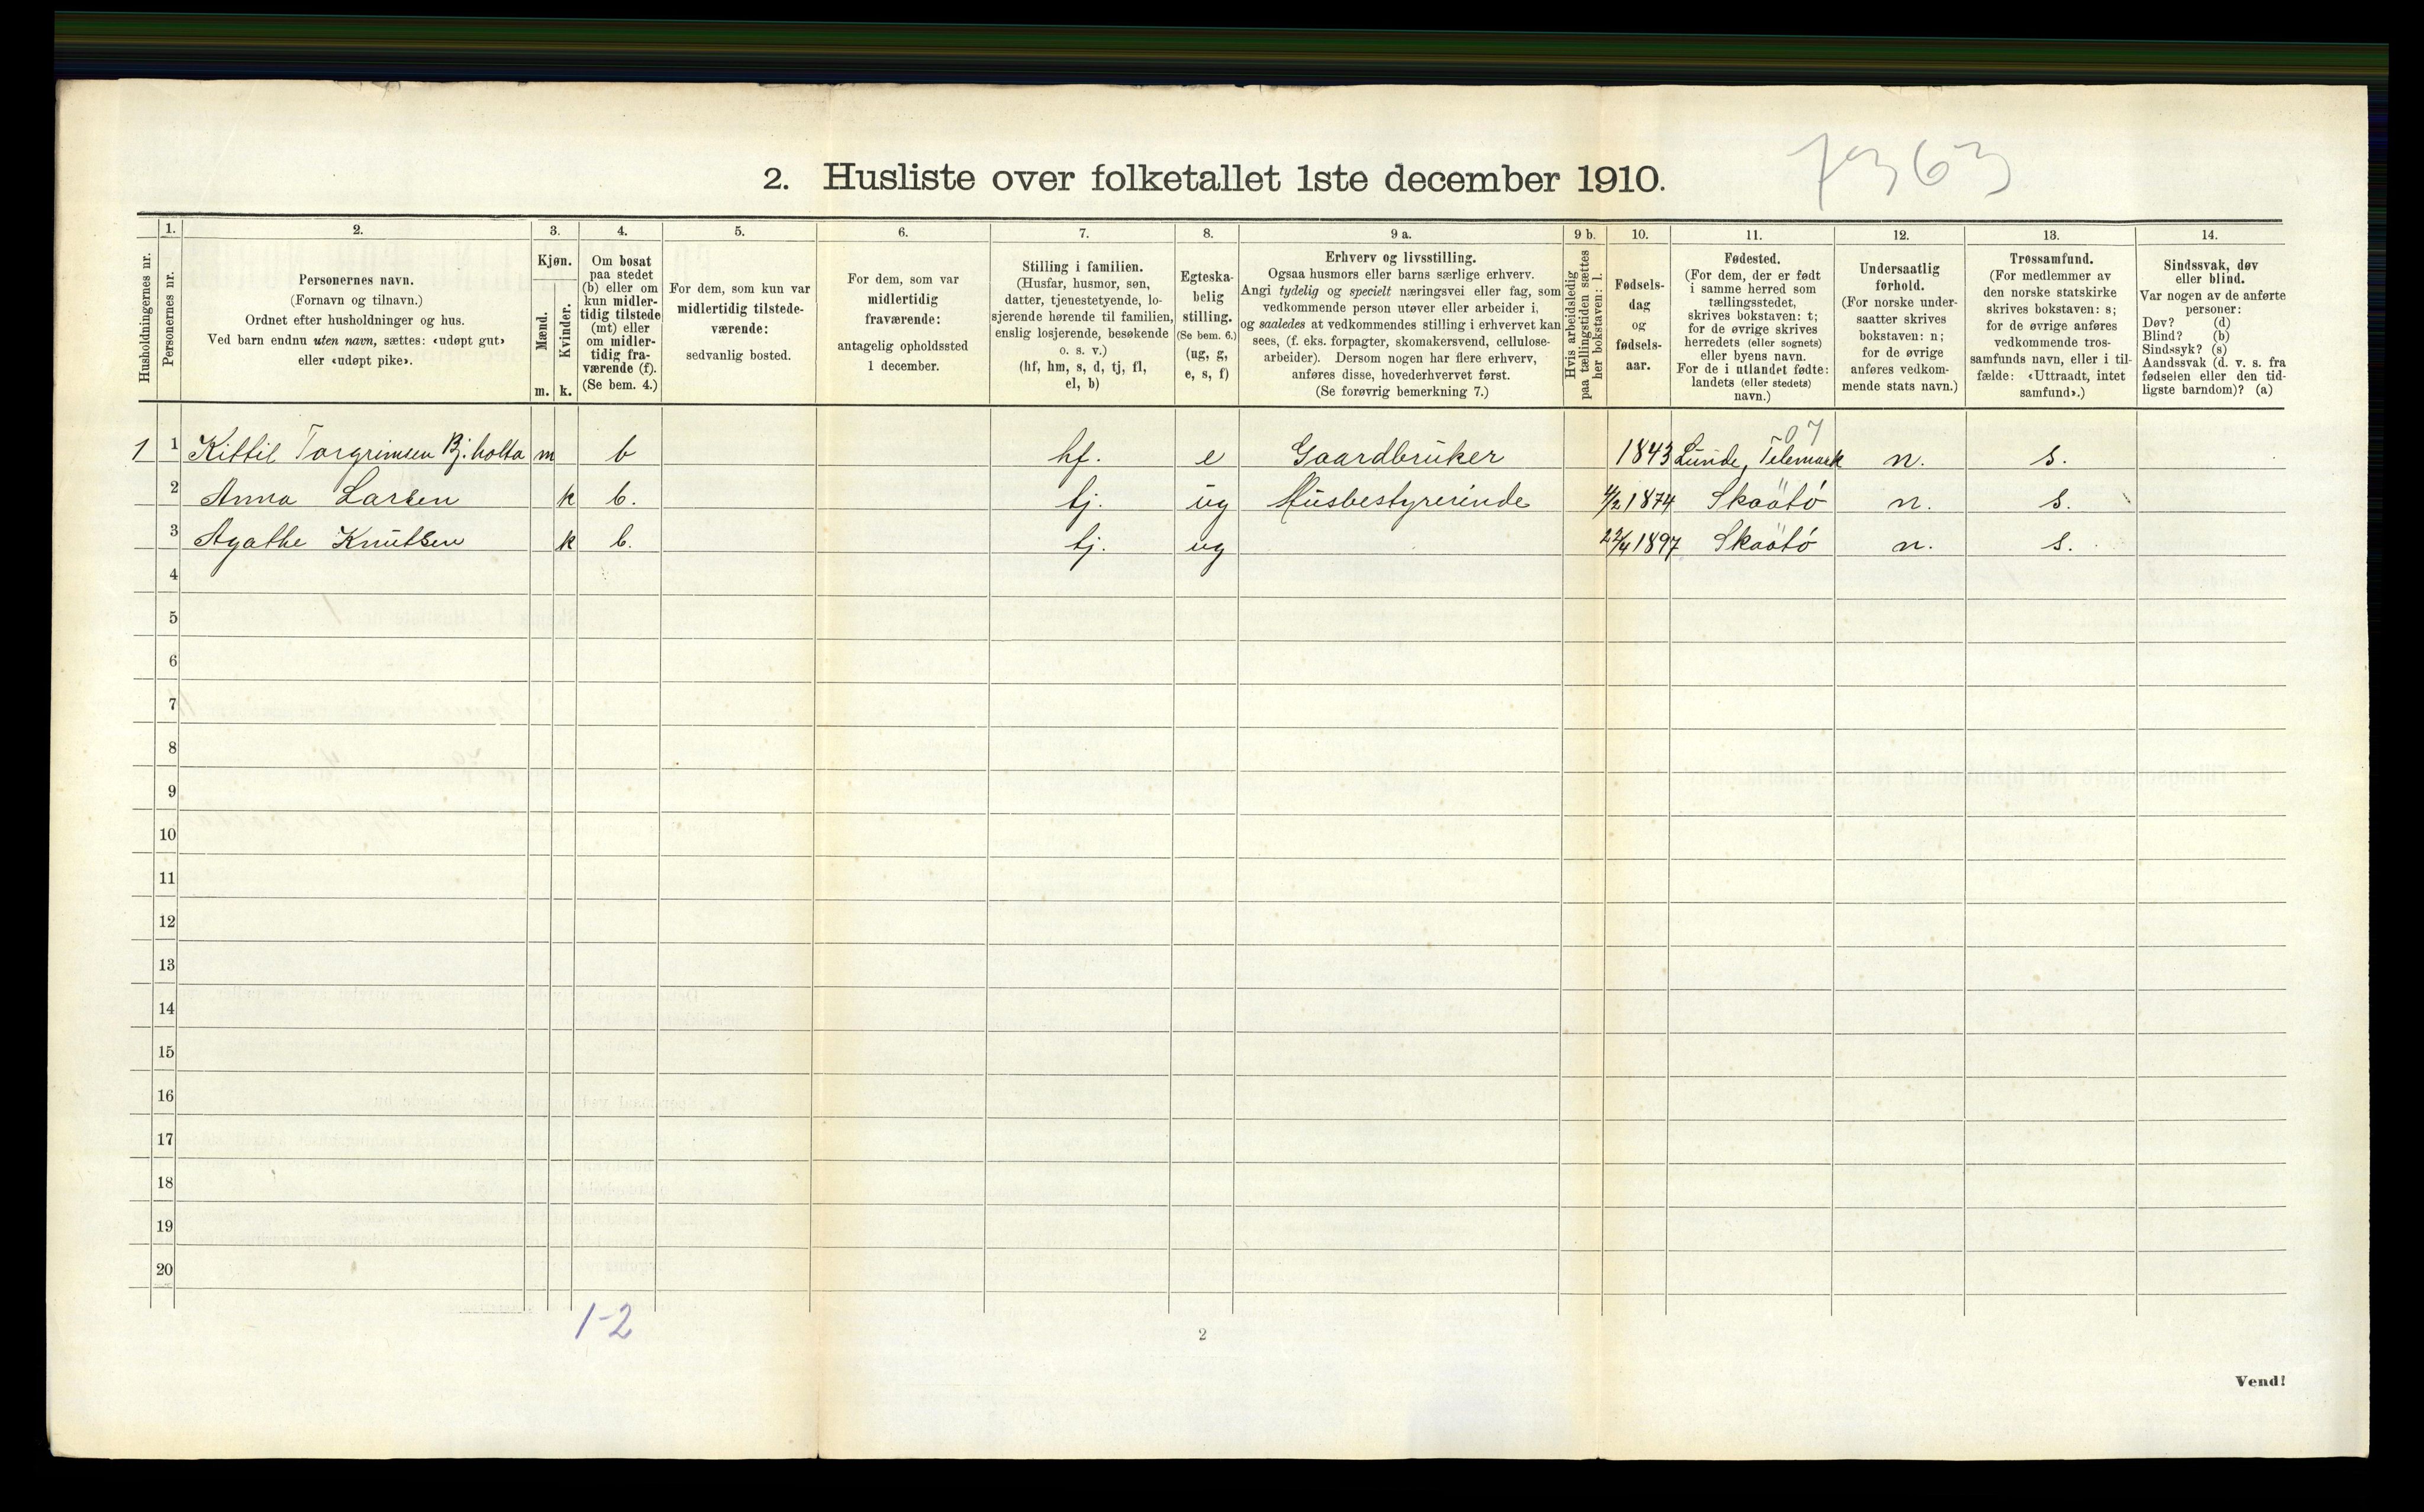 7363
2. Husliste over folketallet 1ste december 1910.
Husholdningernes nr.
1.
Personernes nr.
2.
Personernes navn.
(Fornavn og tilnavn.)
Ordnet efter husholdninger og hus.
Ved barn endnu uten navn, sættes: «udøpt gut»
eller «udøpt pike».
3.
Kjøn.
Mænd.
Kvinder.
m. k.
4.
Om bosat
paa stedet
(b) eller om
kun midler-
tidig tilstede
(mt) eller
om midler-
tidig fra-
værende (f).
(Se bem. 4.)
5.
For dem, som kun var
midlertidig tilstede-
værende:
sedvanlig bosted.
6.
For dem, som var
midlertidig
fraværende:
antagelig opholdssted
1 december.
7.
Stilling i familien.
(Husfar, husmor, søn,
datter, tjenestetyende, lo-
sjerende hørende til familien,
enslig losjerende, besøkende
o. s. v.)
(hf, hm, s, d, tj, fl,
el, b)
8.
Egteska-
belig
stilling.
(Se bem. 6.)
(ug, g,
e, s, f)
9 a.
Erhverv og livsstilling.
Ogsaa husmors eller barns særlige erhverv.
Angi tydelig og specielt næringsvei eller fag, som
vedkommende person utøver eller arbeider i,
og saaledes at vedkommendes stilling i erhvervet kan
sees, (f. eks. forpagter, skomakersvend, cellulose-
arbeider). Dersom nogen har flere erhverv,
anføres disse, hovederhvervet først.
(Se forøvrig bemerkning 7.)
9 b.
Hvis arbeidsledig
paa tællingstiden sættes
her bokstaven: l.
10.
Fødsels-
dag
og
fødsels-
aar.
11.
Fødested.
(For dem, der er født
i samme herred som
tællingsstedet,
skrives bokstaven: t;
for de øvrige skrives
herredets (eller sognets)
eller byens navn.
For de i utlandet fødte:
landets (eller stedets)
navn.)
12.
Undersaatlig
forhold.
(For norske under-
saatter skrives
bokstaven: n;
for de øvrige
anføres vedkom-
mende stats navn.)
13.
Trossamfund.
(For medlemmer av
den norske statskirke
skrives bokstaven: s;
for de øvrige anføres
vedkommende tros-
samfunds navn, eller i til-
fælde: «Uttraadt, intet
samfund».)
14.
Sindssvak, døv
eller blind.
Var nogen av de anførte
personer:
Døv? (d)
Blind? (b)
Sindssyk? (s)
Aandssvak (d. v. s. fra
fødselen eller den tid-
ligste barndom)? (a)
07
1 1 Kittil Torgrimsen Bj.holta m b hf. e Gaardbruker 1843 Lunde, Telemark n. s.
2 Anna Larsen k b. tj. ug Husbestyrerinde 4/2 1874 Skaätö n. s.
3 Agathe Knutsen k b. tj. ug 22/4 1897 Skaätö n. s.
4
5
6
7
8
9
10
11
12
13
14
15
16
17
18
19
20
1-2
2
Vend!